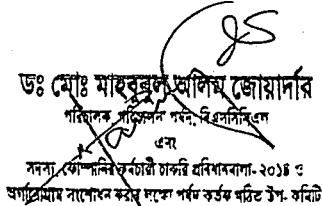 ডঃ মোঃ মাহবুবুল আলিম জোয়ার্দার
পরিচালক, পরিচালনা পর্ষদ, বিএসসিসিএল
এবং
সদস্য, কোম্পানির কর্মচারী চাকরি প্রবিধানমালা- ২০১৪ ও
অর্গানোগ্রাম সংশোধন করার লক্ষ্যে পর্ষদ কর্তৃক গঠিত উপ- কমিটি